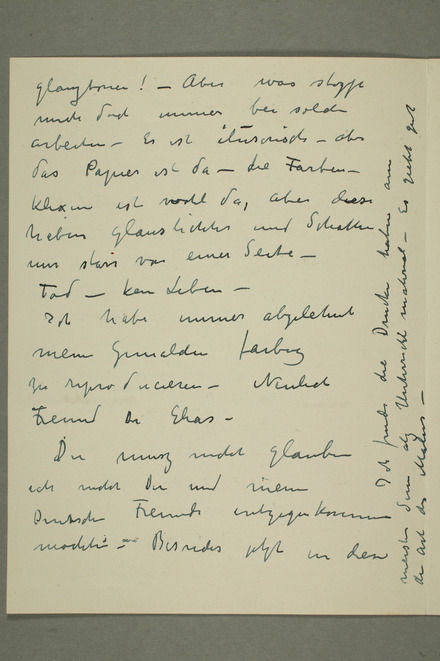 glangtoner! – Aber was stoppt
mich doch immer bei solchen
arbeiten – Es ist illusorisch – aber
das Papier ist da – die Farben –
ist wohl da, aber diese
haben Glanslichter und Schatten
nur starr von einer Seite –
Tod – kein Leben –
Ich habe immer abgelehnt
meine Gemälden farbig
zu reproducieren – Neulich
Freund Dr Elias –
Du musz nicht glauben
ich nicht Du und meine
Deutsche Freunde entgegenkommen
möchte – jetzt in diese
Ich finde die Drucke haben am
meisten Sinn als Unterricht material – Es giebt gut
die art des Malens –